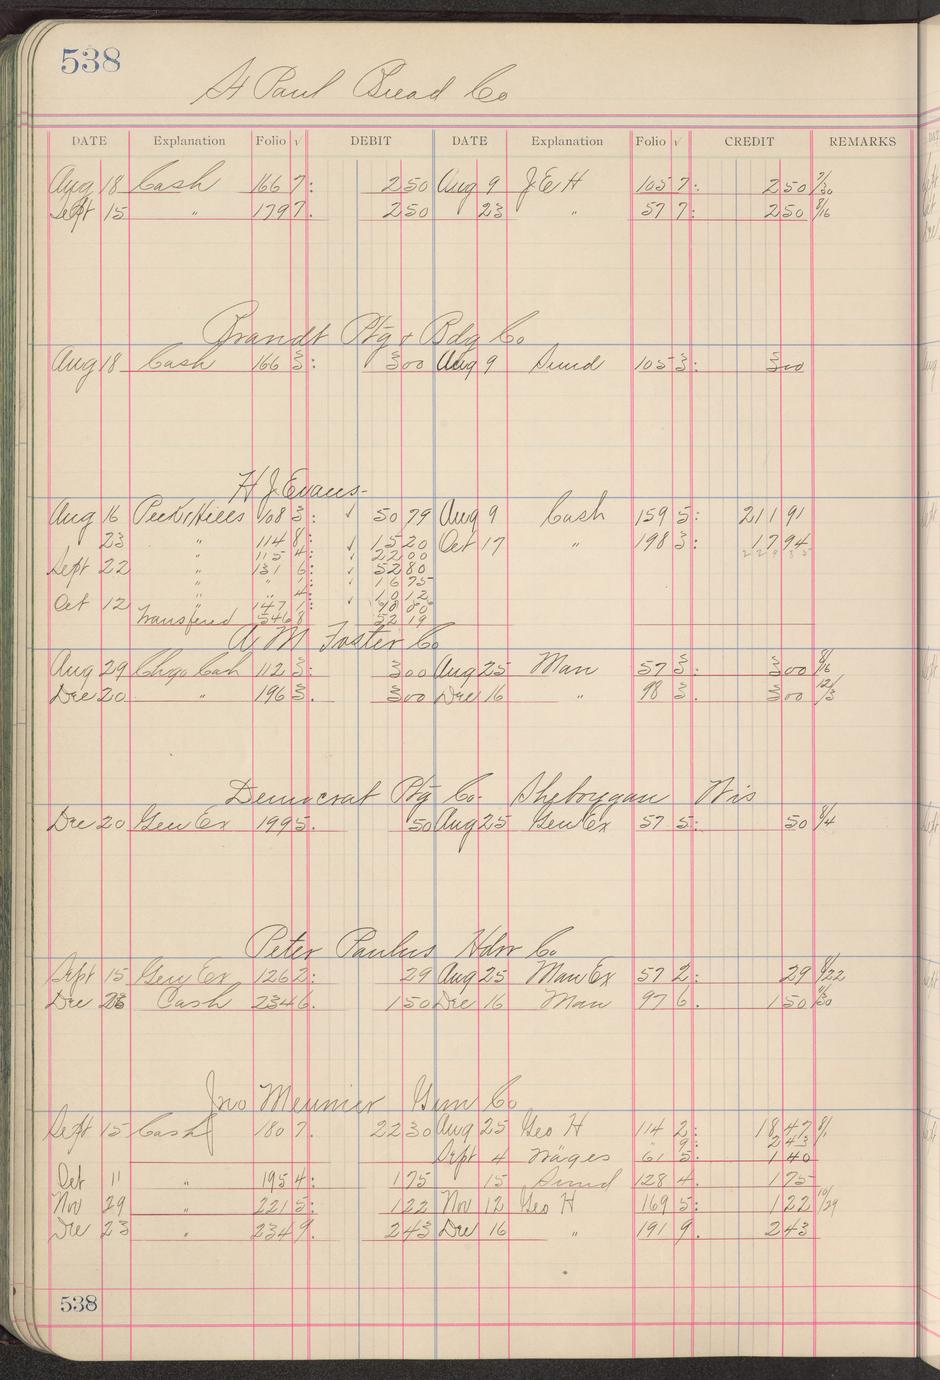 538
St Paul Bread Co
DATE Explanation Folio √ DEBIT DATE Explanation Folio √ CREDIT REMARKS
Aug 18 Cash 166 7: 2 50 Aug 9 J E H 105 7: 2 50 7/30
Sept 15 " 179 7. 2 50 23 " 57 7: 2 50 8/16
Brandt Ptg & Bdg Co
Aug 18 Cash 166 3: 3 00 Aug 9 Sund 105 3: 3 00
H J Evans-
Aug 16 Peck & Hills 108 3: √ 50 79 Aug 9 Cash 159 5: 211 91
23 " 114 8: √ 15 20 Oct 17 " 198 3: 17 94
" 115 4: 22 00
Sept 22 " 131 6: √ 52 80
" " 1: √ 16 75
" " 4: 10 12
Oct 12 " 147 1: √
Transfered 546 8 52 19
A M Foster Co
Aug 29 Chgo Cash 112 3: 3 00 Aug 25 Man 57 3: 3 00 8/16
Dec 20 " 196 3. 3 00 Dec 16 " 98 3. 3 00 12/3
Democrat Ptg Co- Sheboygan Wis
Dec 20 Gen Ex 199 5. 50 Aug 25 Gen Ex 57 5: 50 8/4
Peter Paulus Hdw Co
Sept 15 Gen Ex 126 2: 29 Aug 25 Man Ex 57 2: 29 8/22
Dec 23 Cash 234 6. 1 50 Dec 16 Man 97 6. 1 50
Jno Meunier Gun Co
Sept 15 Cash 180 7. 22 30 Aug 25 Geo H 114 2: 18 47 8/1
" 9: 2 43
Sept 4 Wages 61 5: 1 40
Oct 11 " 195 4: 1 75 15 Sund 128 4. 1 75
Nov 29 " 221 5: 1 22 Nov 12 Geo H 169 5: 1 22 10/29
Dec 23 " 234 9. 2 43 Dec 16 " 191 9. 2 43
538